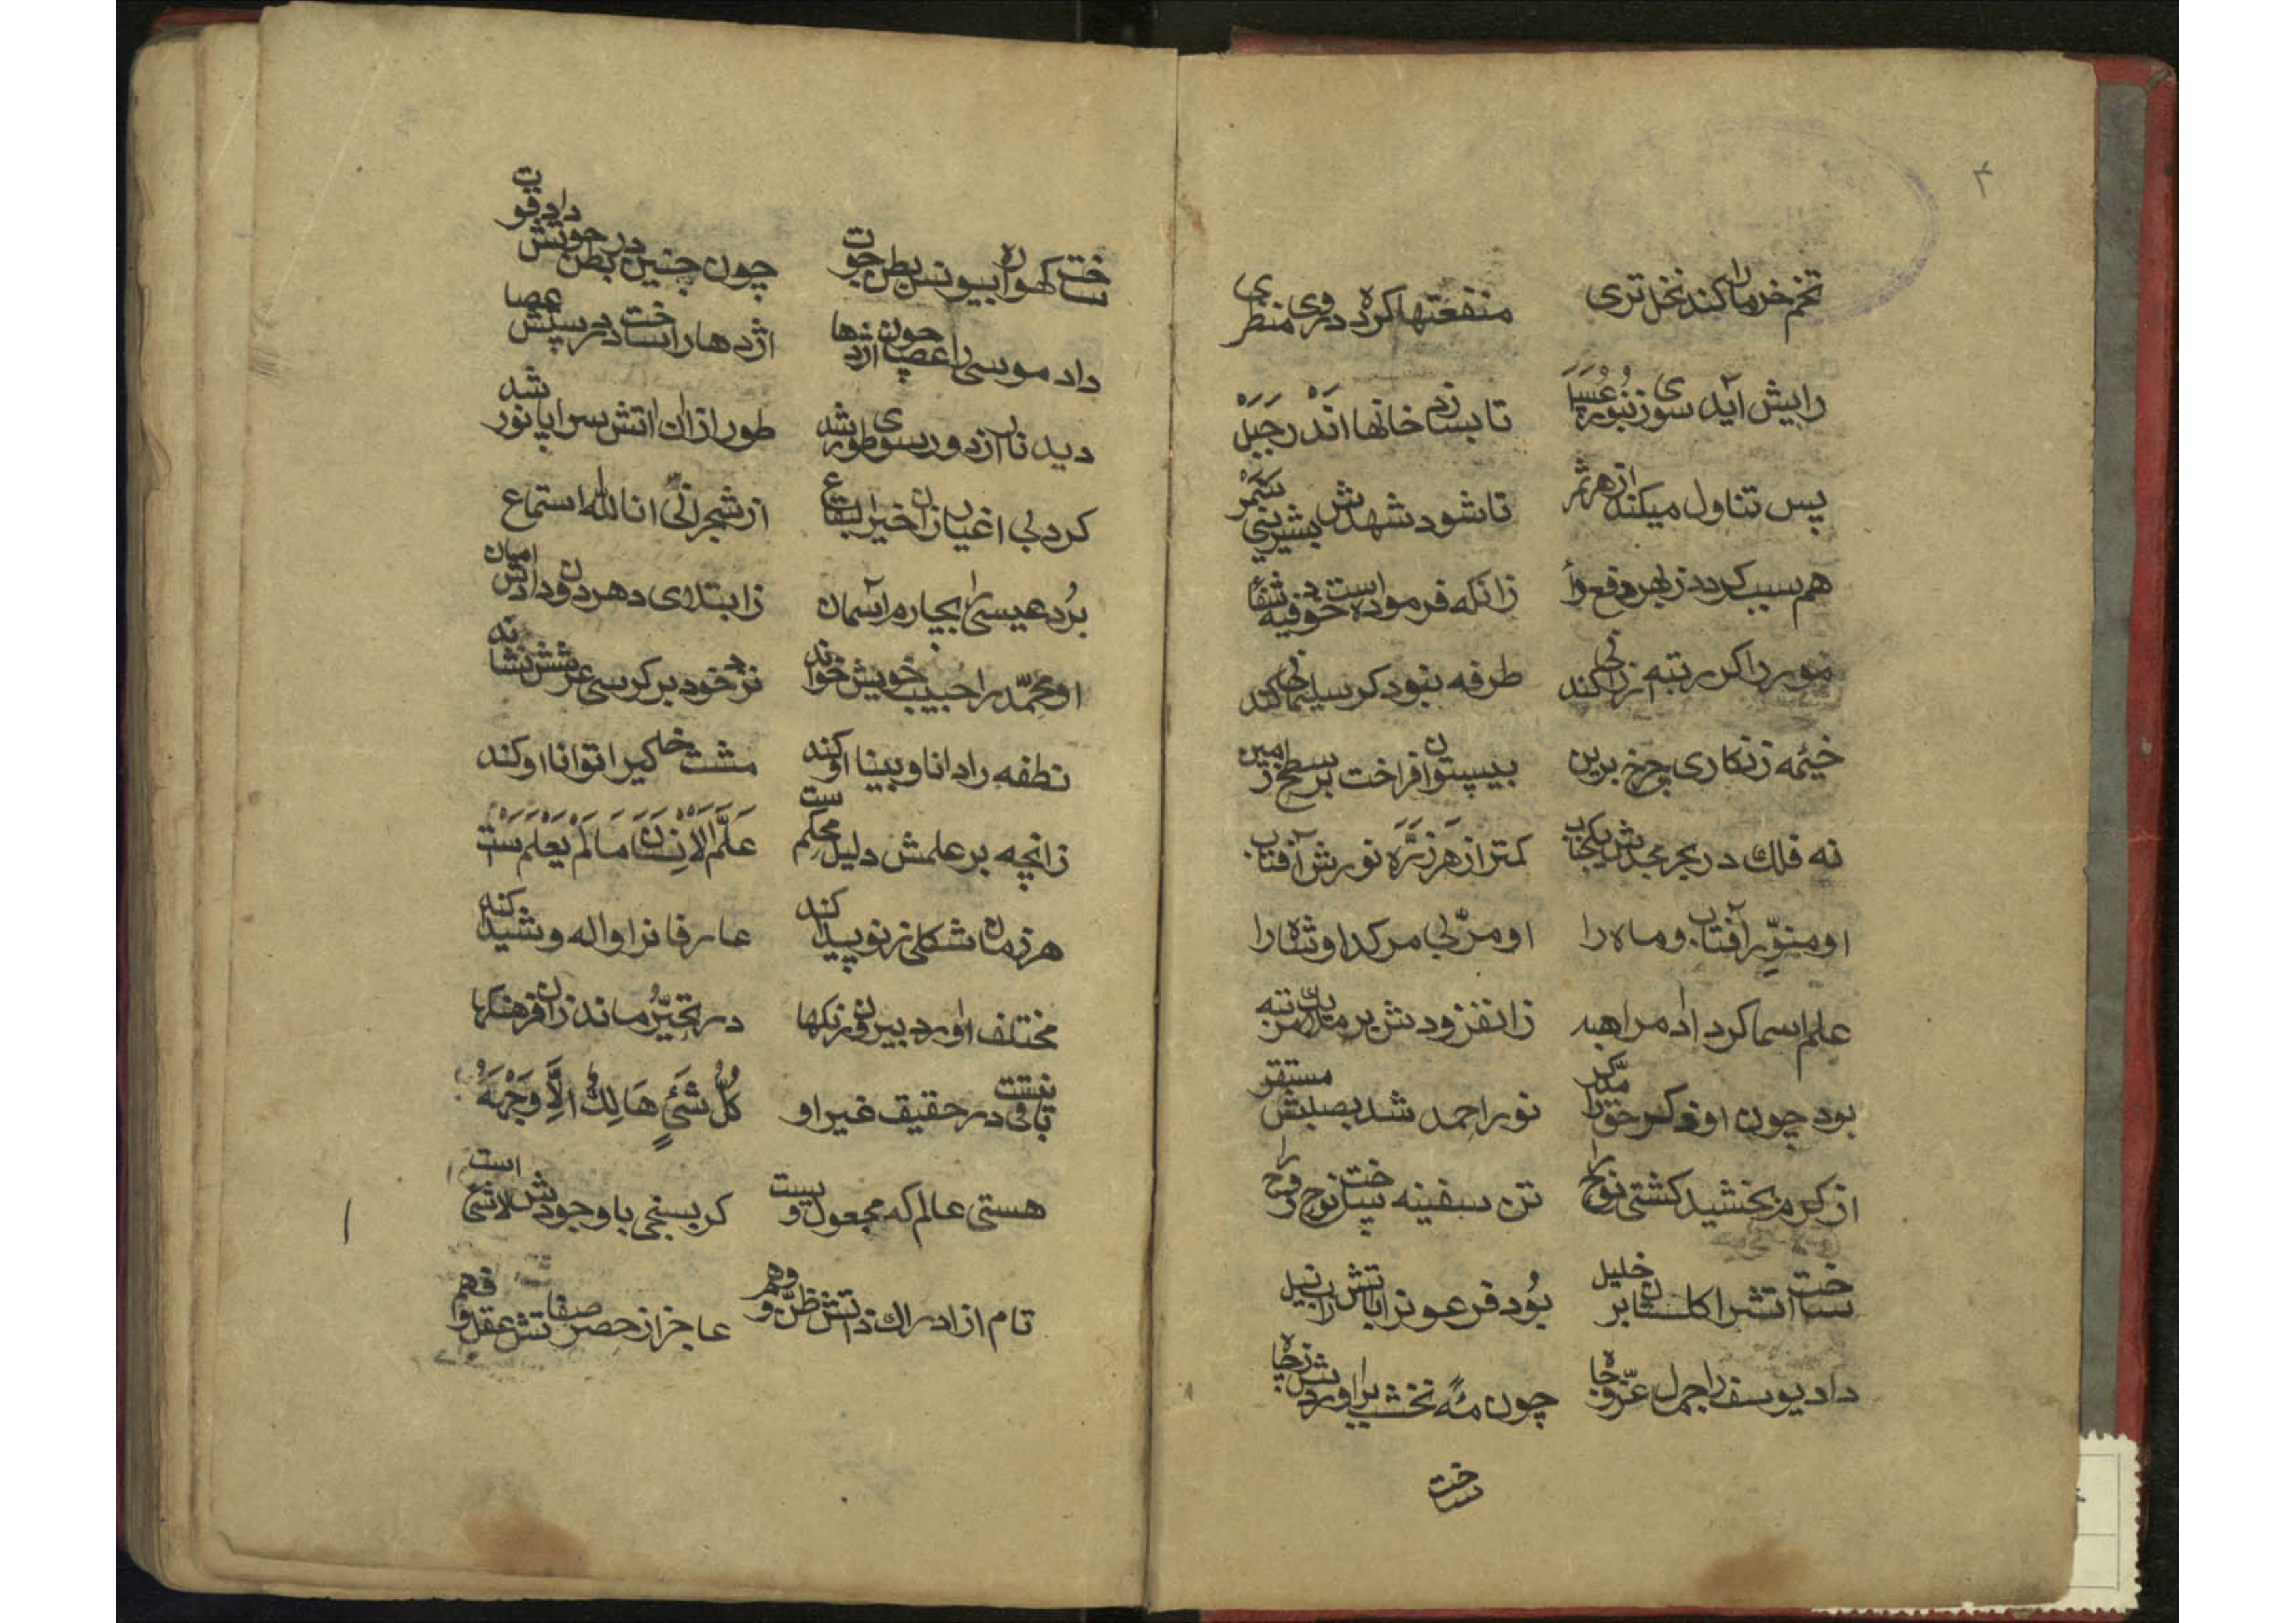 ۴
تخم خرما را کند نخل تری منفعتها کرده در وی منظری
رایش آید سوی زنبور عسل تا بسازد خانها اندر جبل
پس تناول میکند از هر ثمر تا شود شهدش بشیرینی سمر
هم سبب کردد ز بهر دفع وا زانکه فرموده است خود فیه شفا
مور را کر رتبه ارزانی کند طرفه نبود کر سلیمانی کند
خیمه زنکاری چرخ برین بیستون افراخت بر سطح زمین
نه فلك در بحر مجدش یکحباب کمتر از هر ذره نورش آفتاب
او منور آفتاب و ماه را او مربی مر کدا و شاه را
علم اسما کرد آدم را هبه زان فزودش بر ملایك مرتبه
بود چون او ذکر حق را مدکر نور احمد شد بصلبش مستقر
از کرم بخشید کشتی نوح را تن سفینه ساخت نوح روح را
ساخت آتش را کلستان بر خلیل بود فرعونرا بآتش رود نیل
داد یوسف را جمال عز و جاه چون مه نخشب برآوردش ز چاه
ساخت
ساخت کهواره بیونس بطن حوت چون جنین در بطن حویش داد قوت
داد موسی را عصا چون اژدها اژدها را ساخت در سپش عصا
دید نار از دور سوی طور شد طور ازان اتش سراپا نور شد
کرد بی اغیار زان خیر البقاع از شجر انی انا لله استماع
برد عیسی را بچارم آسمان ز ابتلای دهر دون دادش امان
او محمد را حبیب خویش خواند نزد خود بر کرسی عرشش نشاند
نطفه را دانا و بینا او کند مشت خاکیرا توانا او کند
زانچه بر علمش دلیل محکم ست علم الانسان ما لم یعلم ست
هر زمان شکلی ز نو پیدا کند عارفانرا واله و شیدا کند
مختلف آورد بیرون رنکها در تحیر ماند زان فرهنکها
باقی در حقیقت غیر او نیست کل شئ هالك الا وجهه
هستی عالم که مجعول ویست کر بسنجی با وجودش لاشئ است
نام از ادراك ذاتش ظن و وهم عاجز از حصر صفاتش عقل و فهم